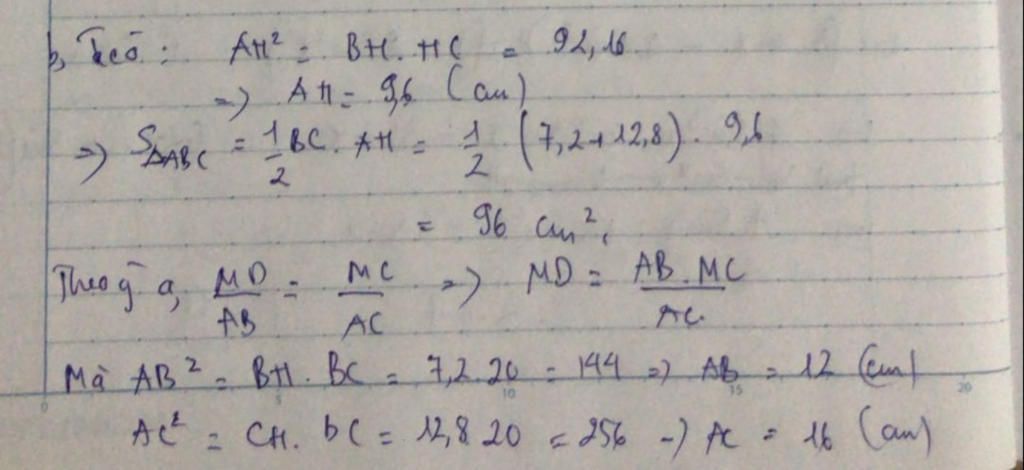 b, Ta có: AH² = BH. HC = 92,16
=> AH = 9,6 (cm)
=> S∆ABC = 1/2 BC. AH = 1/2 (7,2+12,8). 9,6
= 96 cm².
Theo ý a, MD/AB = MC/AC => MD = AB.MC/AC.
Mà AB² = BH. BC = 7,2.20 = 144 => AB = 12 (cm)
AC² = CH. BC = 12,8 20 = 256 -> AC = 16 (cm)
0 5 10 15 20